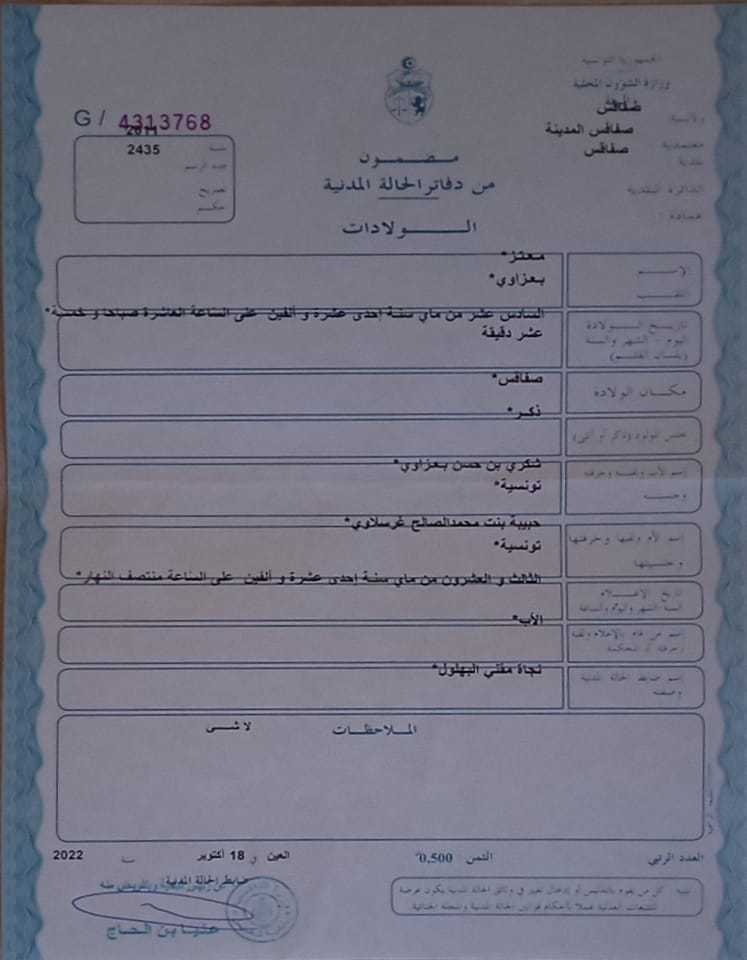 الجمهورية التونسية
وزارة الشؤون المحلية
ولاية: صفاقس
معتمدية صفاقس المدينة
بلدية صفاقس
الدائرة البلدية
عمادة :
G / 4313768
سنة 2011
عدد الرسم 2435
تصريح
حكم
مضمون
من دفاتر الحالة المدنية
الولادات
الإسم معتز*
اللقب بعزاوي*
تاريخ الولادة السادس عشر من ماي سنة إحدى عشرة و ألفين على الساعة العاشرة صباحا و خمسة*
اليوم - الشهر والسنة عشر دقيقة
(بلسان القلم)
مكان الولادة صفاقس*
جنس المولود (ذكر أو أنثى) ذكر*
إسم الأب ولقبه وحرفته شكري بن حسن بعزاوي*
وجنسيته تونسية*
إسم الأم ولقبها وحرفتها حبيبة بنت محمدالصالح غرسلاوي*
وجنسيتها تونسية*
تاريخ الإعلام الثالث و العشرون من ماي سنة إحدى عشرة و ألفين على الساعة منتصف النهار*
السنة الشهر واليوم والساعة
إسم من قام بالإعلام ولقبه الأب*
وحرفته أو المحكمة
إسم ضابط الحالة المدنية نجاة مقني البهلول*
وصفته
الملاحظات لا شئ
العدد الرتبي الثمن 0,500 العين في 18 أكتوبر سنة 2022
تنبيه كل من يقوم بالتدليس أو إدخال تغيير في وثائق الحالة المدنية يكون عرضة
للتتبعات العدلية عملا بأحكام قوانين الحالة المدنية والمجلة الجنائية
ضابط الحالة المدنية
عن رئيس البلدية وبتفويض منه
علياء بن الحاج